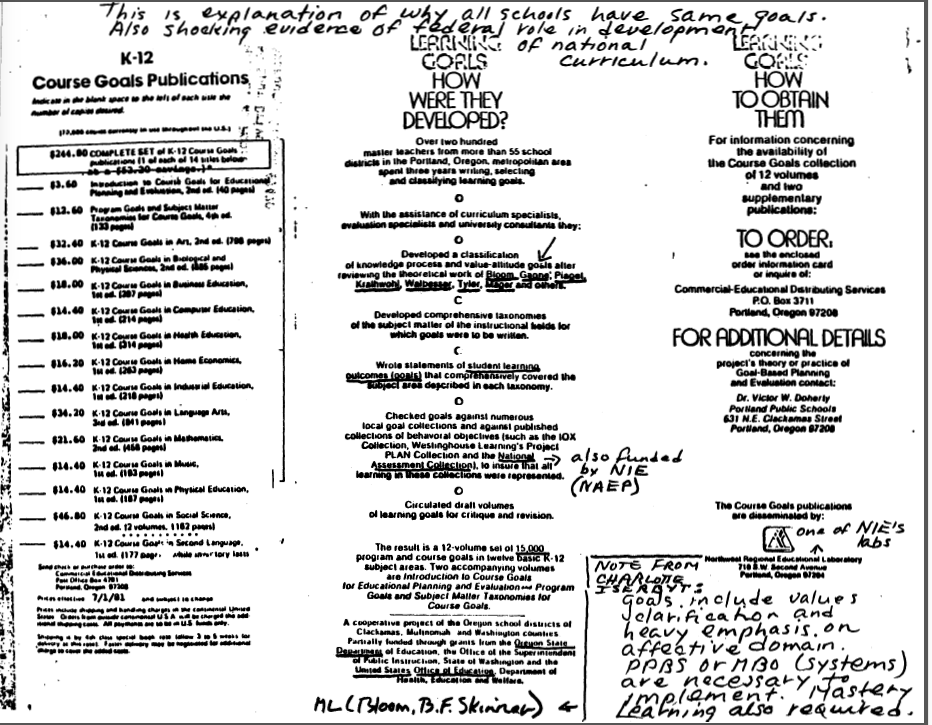 This is explanation of why all schools have same goals.
Also shocking evidence of federal role in development
of national
curriculum.
K-12
Course Goals Publications
Indicate in the blank space to the left of each title the
number of copies desired.
(10,000 copies currently in use throughout the U.S.)
$244.80 COMPLETE SET of K-12 Course Goals
publications (1 of each of 14 titles below
$3.60 Introduction to Course Goals for Educational
Planning and Evaluation, 2nd ed. (40 pages)
Program Goals and Subject Matter
Taxonomies for Course Goals, 4th ed.
$32.40 K-12 Course Goals in Art, 2nd ed.
$36.00 K-12 Course Goals in Biological and
Physical Sciences, 2nd ed.
$18.00 K-12 Course Goals in Business Education,
1st ed.
$14.40 K-12 Course Goals in Computer Education,
1st ed. (214 pages)
$18.00 K-12 Course Goals in Health Education,
1st ed. (314 pages)
$16.20 K-12 Course Goals in Home Economics,
1st ed. (263 pages)
$14.40 K-12 Course Goals in Industrial Education,
1st ed. (218 pages)
K-12 Course Goals in Language Arts,
3rd ed. (841 pages)
$21.60 K-12 Course Goals in Mathematics,
2nd ed.
$14.40 K-12 Course Goals in Music,
1st ed.
$14.40 K-12 Course Goals in Physical Education,
1st ed. (187 pages)
$46.80 K-12 Course Goals in Social Science,
2nd ed. (2 volumes, 1182 pages)
$14.40 K-12 Course Goals in Second Language,
1st ed. (177 pages) while inventory lasts
Send check or purchase order to:
Commercial Educational Distributing Services
Post Office Box
Portland, Oregon 97208
Prices effective 7/1/81 and subject to change
Prices include shipping and handling charges in the continental United
States. Orders from outside continental U.S.A. will be charged the add-
itional shipping costs. All payments are to be in U.S. funds only.
Shipping is by 4th class special book rate (allow 3 to 5 weeks for
delivery at this rate). Faster delivery may be negotiated for additional
charge to cover the added costs.
LEARNING
GOALS
HOW
WERE THEY
DEVELOPED?
Over two hundred
master teachers from more than 55 school
districts in the Portland, Oregon, metropolitan area
spent three years writing, selecting
and classifying learning goals.
With the assistance of curriculum specialists,
evaluation specialists and university consultants they:
Developed a classification
of knowledge process and value-attitude goals after
reviewing the theoretical work of Bloom, Gagne, Piaget,
Krathwohl, Walbesser, Tyler, Mager and others.
Developed comprehensive taxonomies
of the subject matter of the instructional fields for
which goals were to be written.
Wrote statements of student learning
outcomes (goals) that comprehensively covered the
subject area described in each taxonomy.
Checked goals against numerous
local goal collections and against published
collections of behavoral objectives (such as the IOX
Collection, Westinghouse Learning's Project
PLAN Collection and the National
Assessment Collection), to insure that all
learning in these collections were represented.
→ also funded
by NIE
(NAEP)
Circulated draft volumes
of learning goals for critique and revision.
The result is a 12-volume set of 15,000
program and course goals in twelve basic K-12
subject areas. Two accompanying volumes
are Introduction to Course Goals
for Educational Planning and Evaluation and Program
Goals and Subject Matter Taxonomies for
Course Goals.
A cooperative project of the Oregon school districts of
Clackamas, Multnomah and Washington counties
Partially funded through grants from the Oregon State
Department of Education, the Office of the Superintendent
of Public Instruction, State of Washington and the
United States Office of Education, Department of
Health, Education and Welfare.
ML (Bloom, B.F. Skinner) ←
LEARNING
GOALS
HOW
TO OBTAIN
THEM
For information concerning
the availability of
the Course Goals collection
of 12 volumes
and two
supplementary
publications:
TO ORDER,
see the enclosed
order information card
or inquire of:
Commercial-Educational Distributing Services
P.O. Box 3711
Portland, Oregon 97208
FOR ADDITIONAL DETAILS
concerning the
project's theory or practice of
Goal-Based Planning
and Evaluation contact:
Dr. Victor W. Doherty
Portland Public Schools
631 N.E. Clackamas Street
Portland, Oregon 97208
The Course Goals publications
are disseminated by:
one of NIE's
labs
Northwest Regional Educational Laboratory
710 S.W. Second Avenue
Portland, Oregon 97204
NOTE FROM
CHARLOTTE
ISERBYT:
goals include values
clarification and
heavy emphasis on
affective domain.
PPBS or MBO (systems)
are necessary to
implement. Mastery
Learning also required.